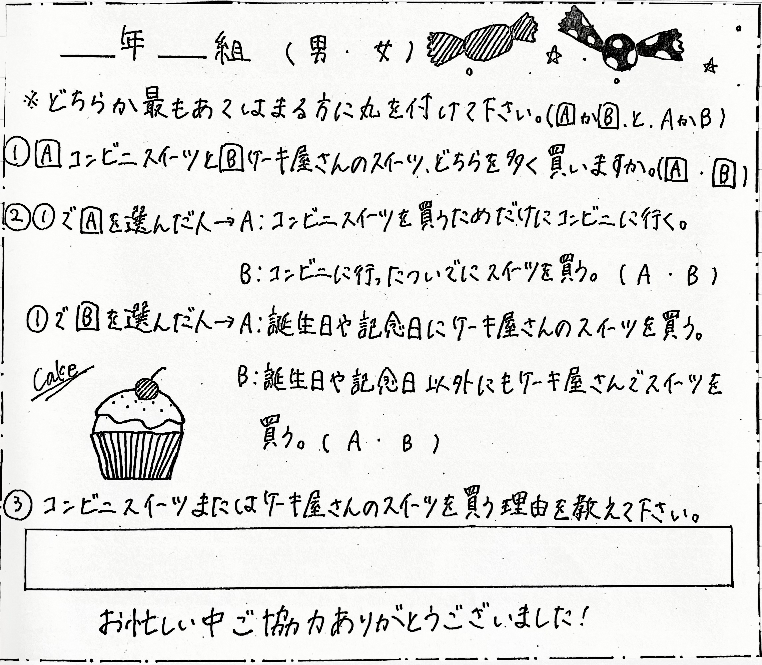 ___年___組 (男・女)
※どちらか最もあてはまる方に丸を付けて下さい。(AかB、と、AかB)
① A コンビニスイーツと B ケーキ屋さんのスイーツ、どちらを多く買いますか。(A・B)
② ①で A を選んだ人→A:コンビニスイーツを買うためだけにコンビニに行く。
B:コンビニに行ったついでにスイーツを買う。(A・B)
①で B を選んだ人→A:誕生日や記念日にケーキ屋さんのスイーツを買う。
Cake
B:誕生日や記念日以外にもケーキ屋さんでスイーツを
買う。(A・B)
③ コンビニスイーツまたはケーキ屋さんのスイーツを買う理由を教えて下さい。
お忙しい中ご協力ありがとうございました!